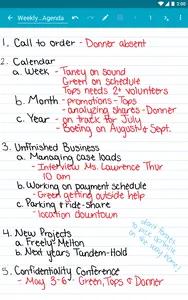 2:00
Weekly...Agenda
1. Call to order - Donner absent
2. Calendar
a. Week - Taney on sound
Green on schedule
Tops needs 2+ volunteers
b. Month - promotions - Tops
- analyzing shares - Donner
c. Year - on track for July
- Boeing on August 4 Sept.
3. Unfinished Business
a. Managing case loads
- Interview Ms. Lawrence Thur
10 am
b. Working on payment schedule
- Green getting outside help
c. Parking + ride-share
- location downtown
4. New Projects
a. Freely-Melton
b. Next years Tandem-Hold
don't forget
to pick
the way home!
5. Confidentiality Conference
- May 3-6 - Green, Tops & Donner